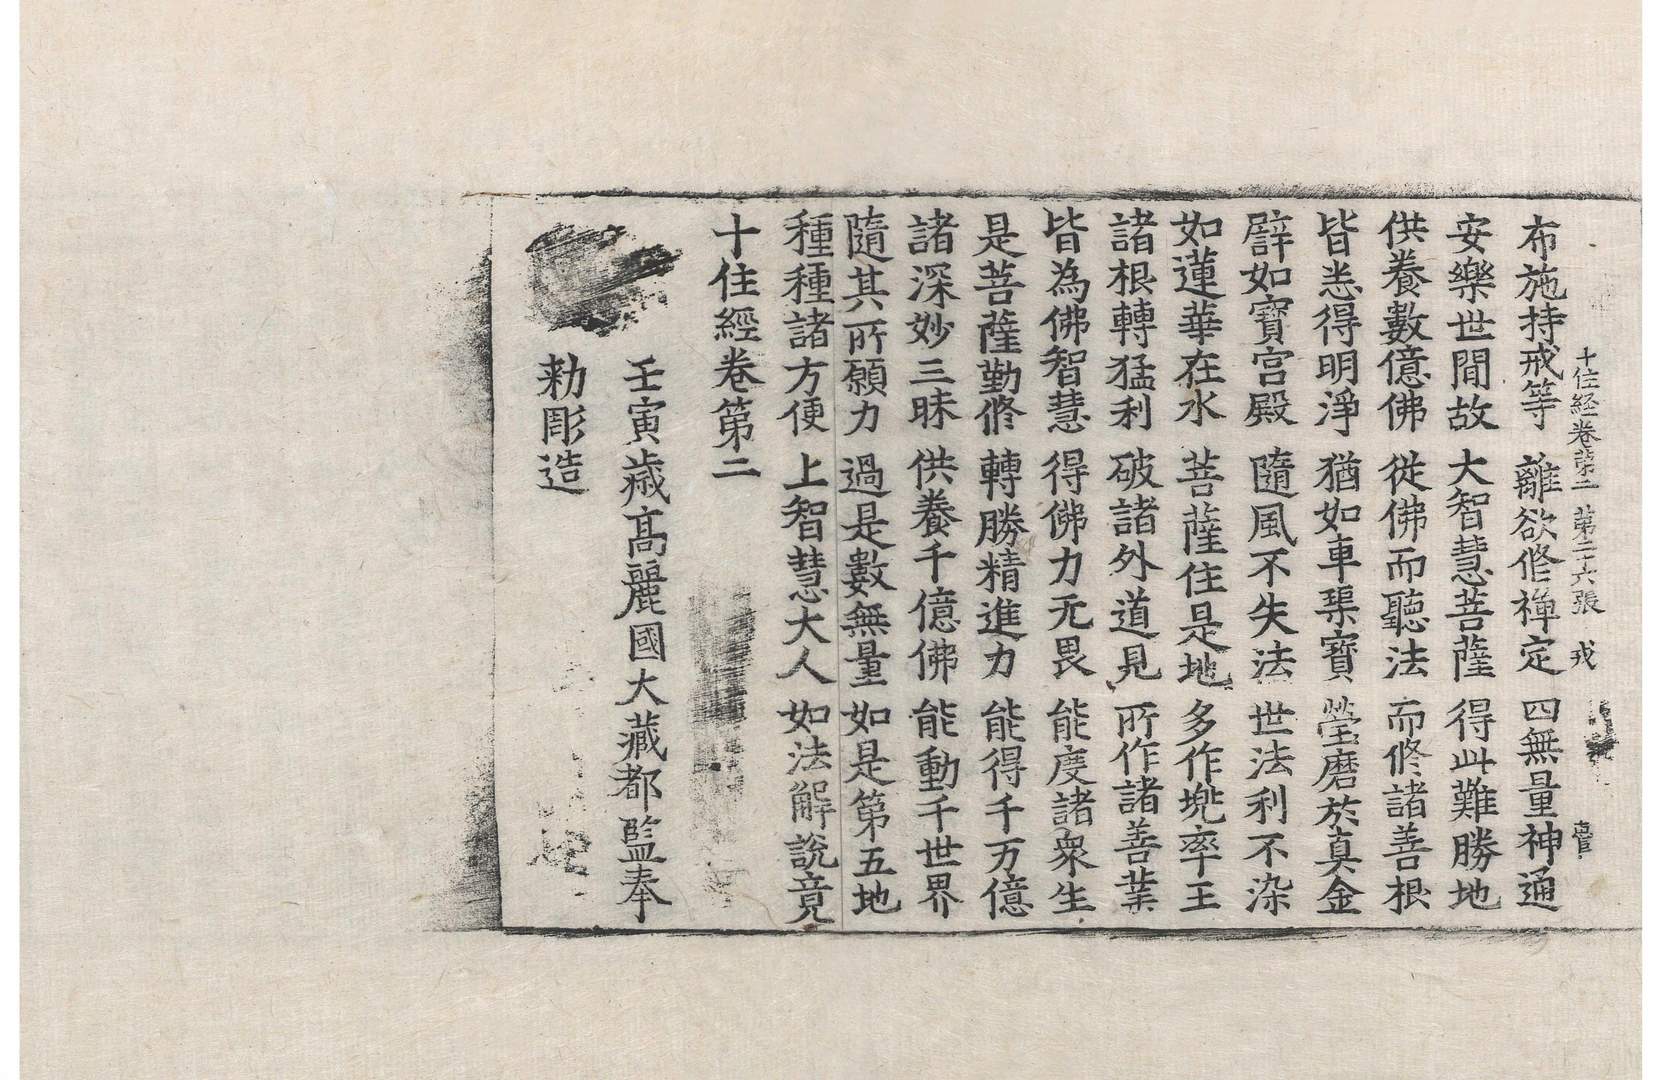 十住経卷第二 第二六張 戎
布施持戒等 離欲修禅定 四無量神通
安樂世間故 大智慧菩薩 得此難勝地
供養數億佛 從佛而聽法 而修諸善根
皆悉得明淨 猶如車𤦲寶 瑩磨於真金
譬如寶宮殿 隨風不失法 世法利不染
如蓮華在水 菩薩住是地 多作兠率王
諸根轉猛利 破諸外道見 所作諸善業
皆為佛智慧 得佛力无畏 能度諸衆生
是菩薩勤修 轉勝精進力 能得千万億
諸深妙三昧 供養千億佛 能動千世界
隨其所願力 過是數無量 如是第五地
種種諸方便 上智慧大人 如法解說竟
十住經卷第二
壬寅歳高麗國大藏都監奉
勑彫造